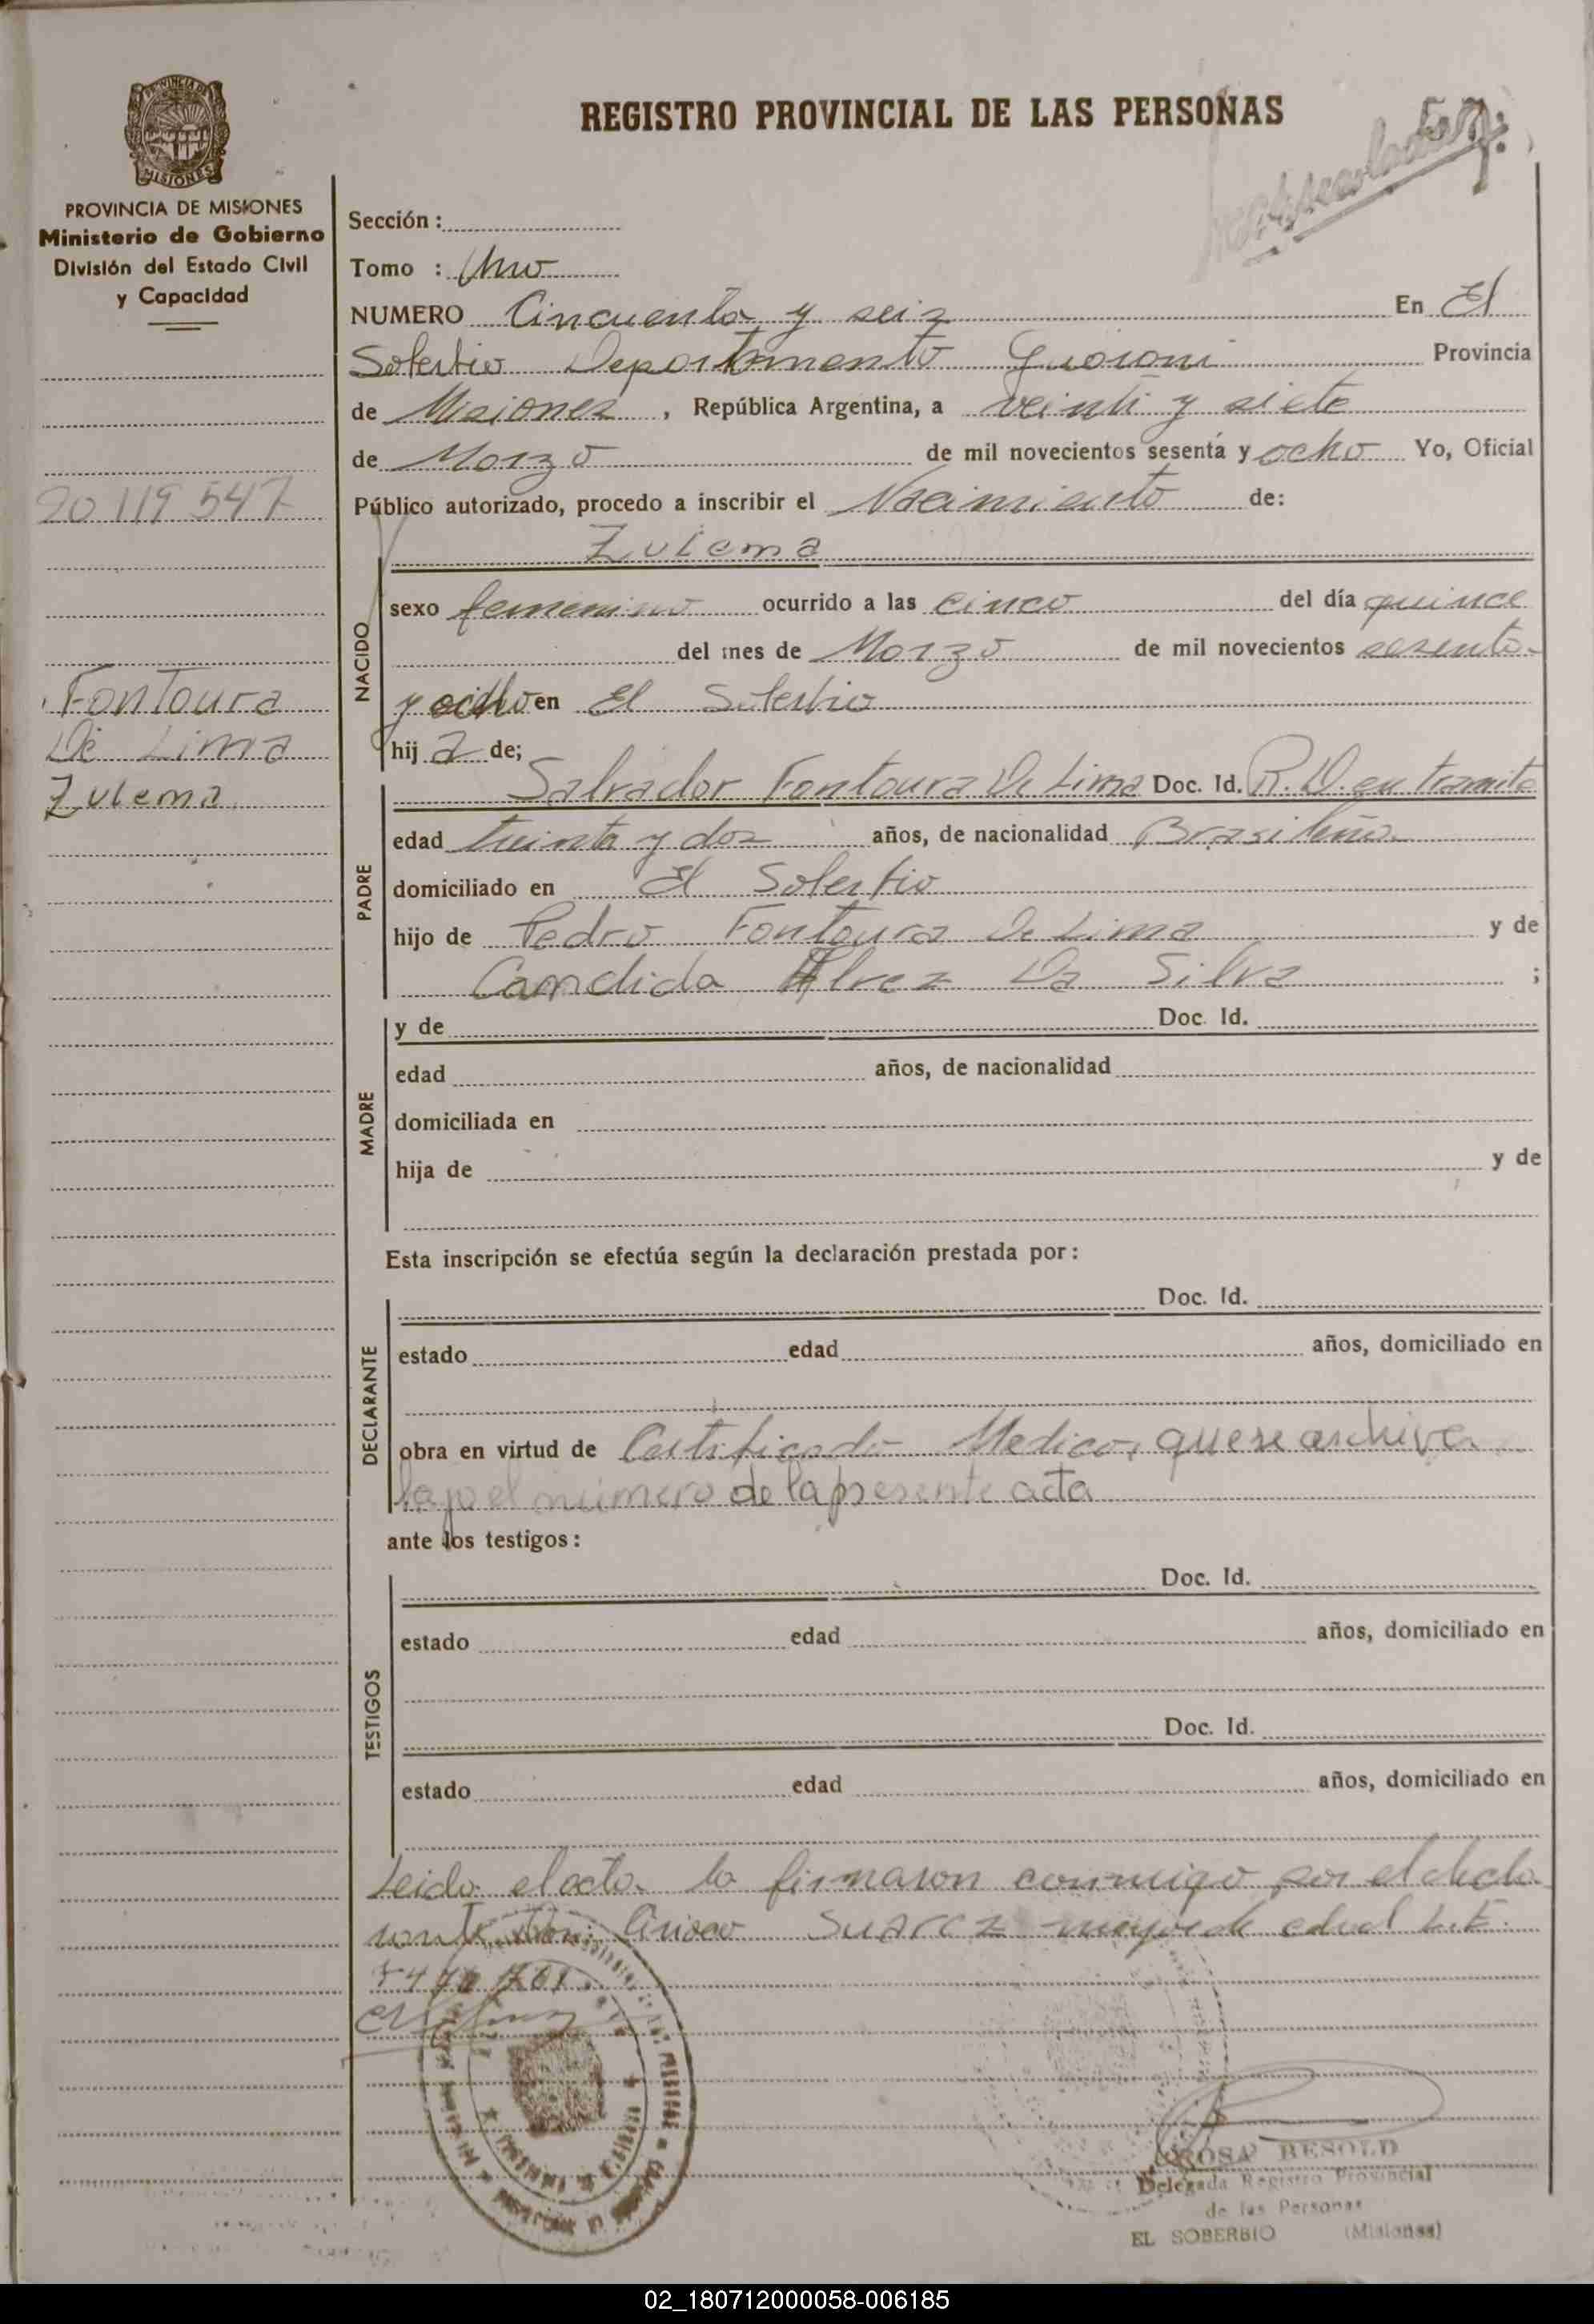 PROVINCIA DE MISIONES
REGISTRO PROVINCIAL DE LAS PERSONAS
57
PROVINCIA DE MISIONES
Ministerio de Gobierno
División del Estado Civil
y Capacidad
Sección :
Tomo : Uno
NUMERO Cincuenta y seiz En El
Soberbio Departamento Guarani Provincia
de Misiones , República Argentina, a veinti y siete
de Marzo de mil novecientos sesenta y ocho Yo, Oficial
20 119 547
Público autorizado, procedo a inscribir el Nacimiento de:
Zulema
NACIDO
sexo femenino ocurrido a las cinco del día quince
del mes de Marzo de mil novecientos sesenta
y ocho en El Soberbio
hij a de;
Fontoura
De Lima
Zulema
PADRE
Salvador Fontoura De Lima Doc. Id. R. D. en tramite
edad treinta y doz años, de nacionalidad Brasileña
domiciliado en El Soberbio
hijo de Pedro Fontoura De Lima y de
Candida Alvez Da Silva ;
MADRE
y de Doc. Id.
edad años, de nacionalidad
domiciliada en
hija de y de
Esta inscripción se efectúa según la declaración prestada por :
DECLARANTE
Doc. Id.
estado edad años, domiciliado en
obra en virtud de Certificado Medico, que se archiva
bajo el número de la presente acta
ante los testigos :
TESTIGOS
Doc. Id.
estado edad años, domiciliado en
Doc. Id.
estado edad años, domiciliado en
Leida el acta la firmaron conmigo por el decla
rante Don Ciriaco Suarez mayor de edad L.E.
ROSA BESOLD
Delegada Registro Provincial
de las Personas
EL SOBERBIO (Misiones)
02_180712000058-006185